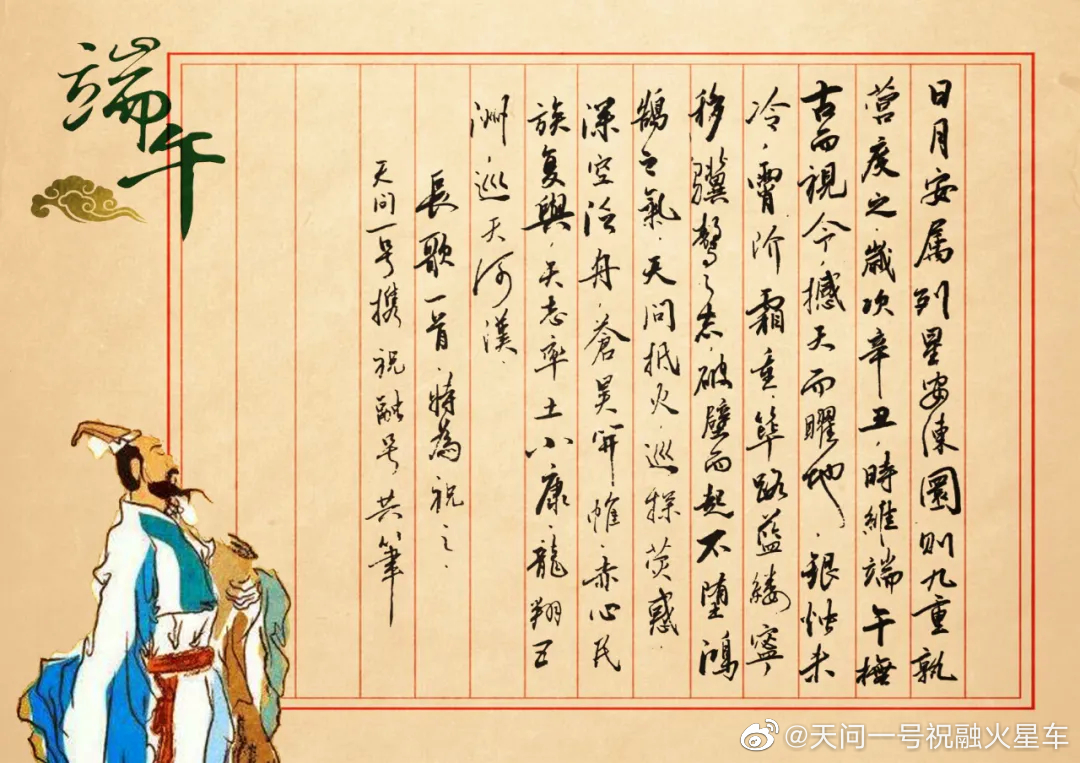 端午
日月安属列星安陳圜则九重孰
营度之.歲次辛丑.時維端午撫
古而視今.撼天而曜地.銀燭未
冷.霄阶霜重.筚路蓝缕.寧
移驥驁之志.破壁而起不堕鴻
鵠之氣.天问抵火.巡探荧惑.
深空泛舟.蒼昊開帷.赤心民
族复興.矢志率土小康.龍翔五
洲.巡天河漢.
長歌一首.特為祝之.
天问一号携祝融号共筆
@天问一号祝融火星车